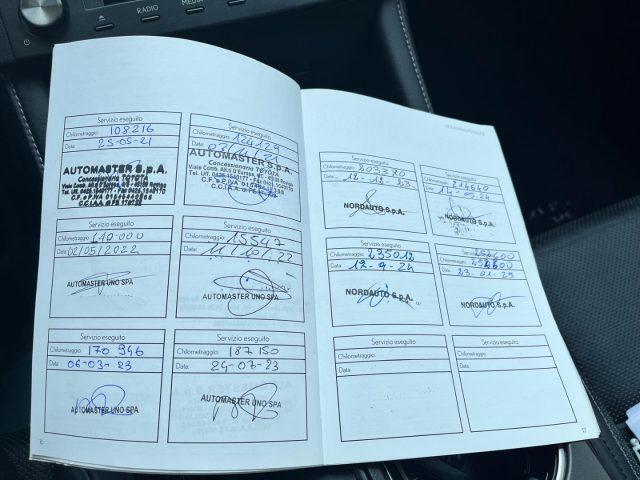 RADIO
MEDIA
Servizio eseguito
Chilometraggio: 108216
Data: 25-05-21
AUTOMASTER S.p.A.
Concessionaria TOYOTA
Servizio eseguito
Chilometraggio: 124129
Data:
AUTOMASTER S.p.A.
Concessionaria TOYOTA
Servizio eseguito
Chilometraggio: 140.000
Data: 02/05/2022
AUTOMASTER UNO SPA
Servizio eseguito
Chilometraggio: 15547
Data: 11/10/22
AUTOMASTER UNO SPA
Servizio eseguito
Chilometraggio: 170 946
Data: 06-03-23
AUTOMASTER UNO SPA
Servizio eseguito
Chilometraggio: 187 150
Data: 24-07-23
AUTOMASTER UNO SPA
16
Servizio eseguito
Chilometraggio: 203320
Data: 12-12-23
NORDAUTO S.p.A.
Servizio eseguito
Chilometraggio: 214640
Data: 14-05-24
NORDAUTO S.p.A.
Servizio eseguito
Chilometraggio: 235012
Data: 12-9-24
NORDAUTO S.p.A.
Servizio eseguito
Chilometraggio:
Data: 23-01-25
NORDAUTO S.p.A.
Servizio eseguito
Chilometraggio:
Data:
Servizio eseguito
Chilometraggio:
Data:
17